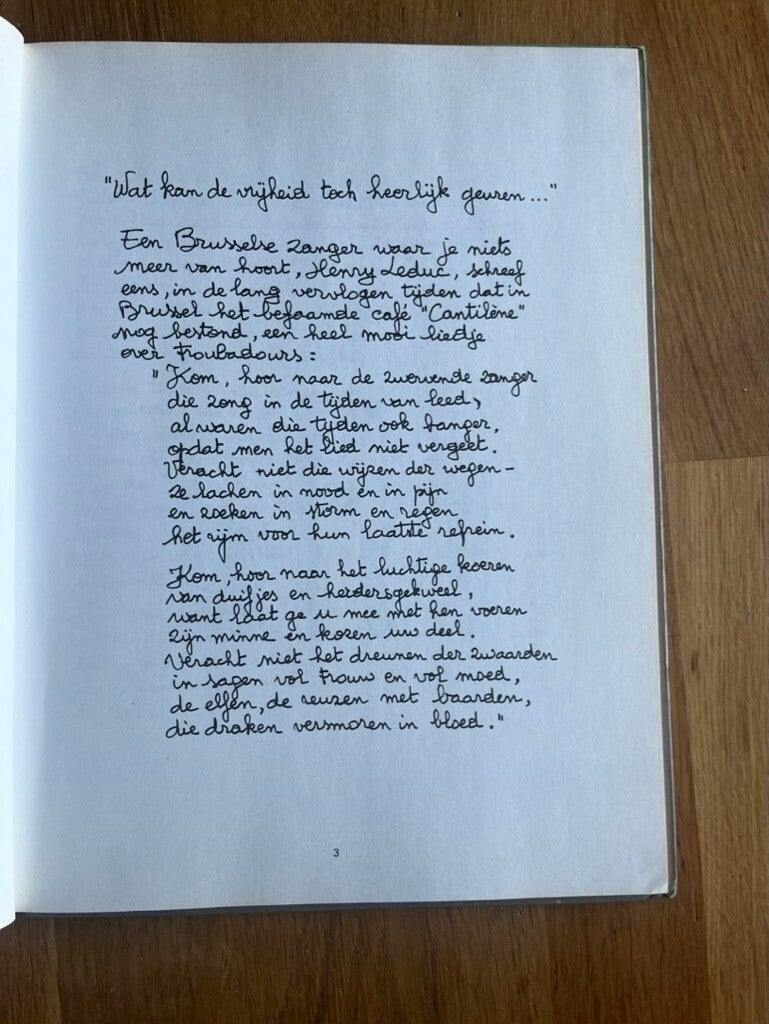 "Wat kan de vrijheid toch heerlijk geuren..."
Een Brusselse zanger waar je niets
meer van hoort, Henry Leduc, schreef
eens, in de lang vervlogen tijden dat in
Brussel het befaamde café "Cantilène"
nog bestond, een heel mooi liedje
over Troubadours:
"Kom, hoor naar de zwervende zanger
die zong in de tijden van leed,
al waren die tijden ook banger,
opdat men het lied niet vergeet.
Veracht niet die wijzen der wegen-
ze lachen in nood en in pijn
en zoeken in storm en regen
het rijm voor hun laatste refrein.
Kom, hoor naar het luchtige koeren
van duifjes en herdersgekweel,
want laat ge u mee met hen voeren
zijn minne en kozen uw deel.
Veracht niet het dreunen der zwaarden
in sagen vol trouw en vol moed,
de elfen, de reuzen met baarden,
die draken versmoren in bloed."
3